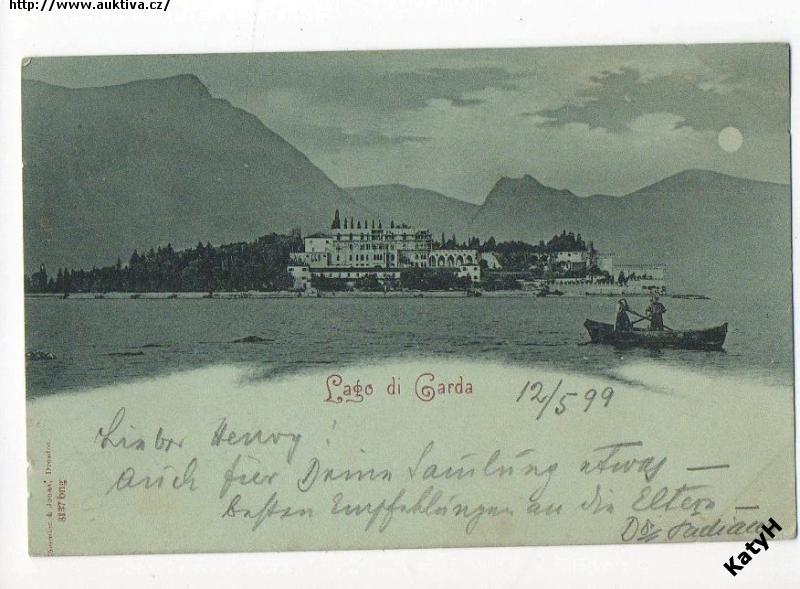 http://www.auktiva.cz/
Lago di Garda
12/5 99
Lieber Henry!
Auch für Deine Samlung etwas —
Besten Empfehlungen an die Eltern —
Dr.
8137 bng
KatyH